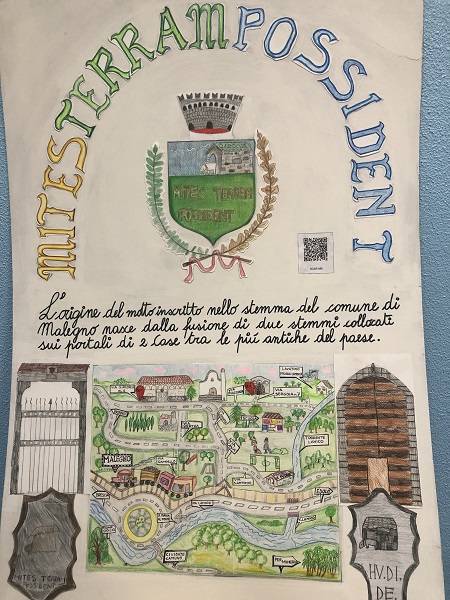 MITES TERRAM POSSIDENT
MITES TERRAM
POSSIDENT
L'origine del motto inscritto nello stemma del comune di
Malegno nasce dalla fusione di due stemmi collocati
sui portali di 2 case tra le più antiche del paese.
VIA
TORRENTE
LANICO
MALEGNO
CIVIDATE
CAMUNO
MITES TERRAM
POSSIDENT
HV.DI.
DE.